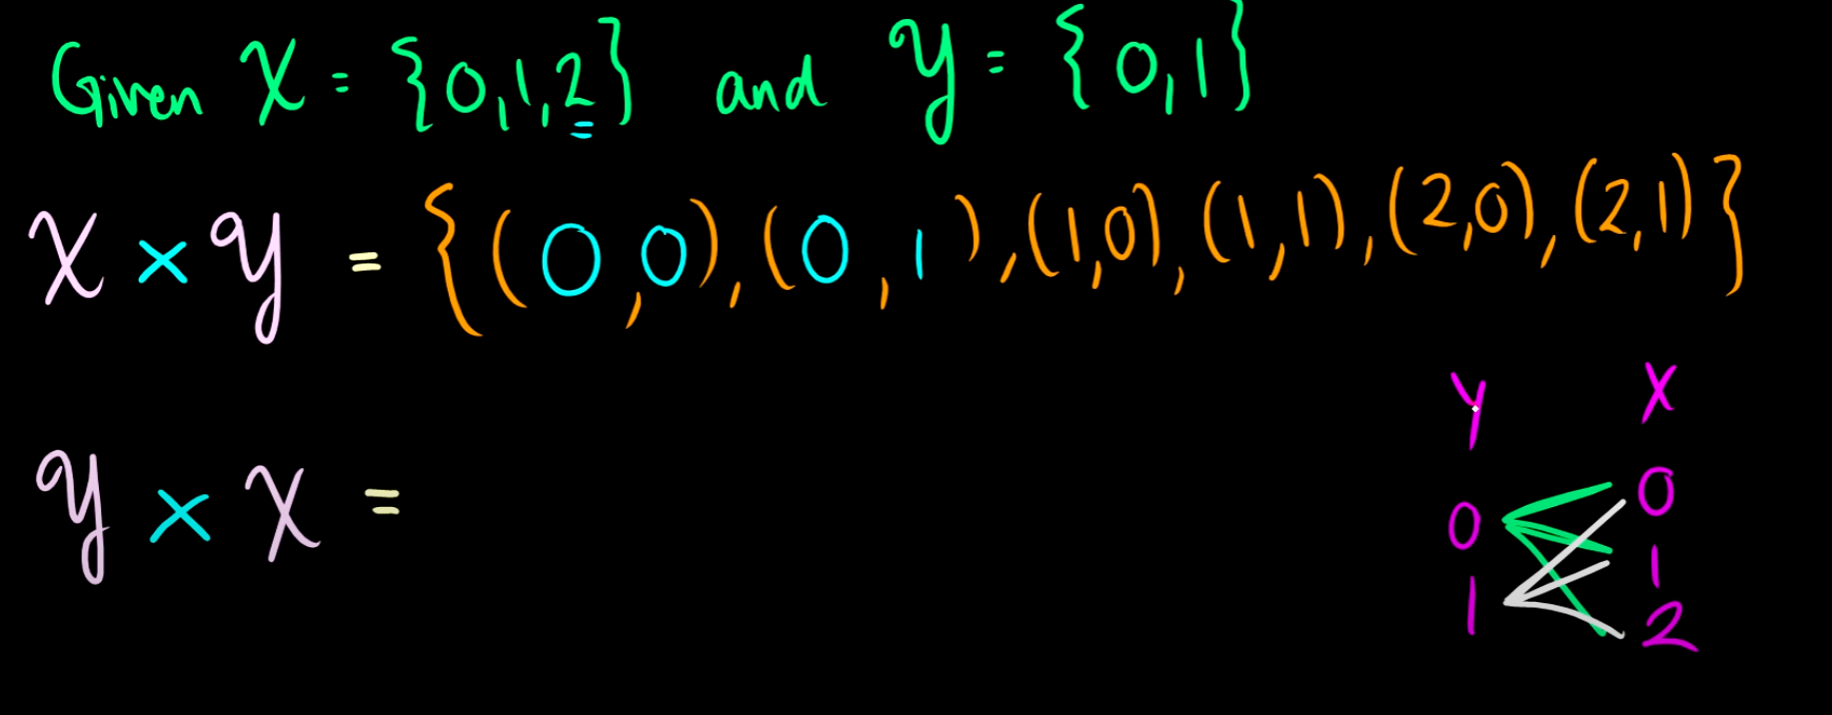 Given X = {0,1,2} and y = {0,1}
X × y = {(0,0),(0,1),(1,0),(1,1),(2,0),(2,1)}
y × X =
Y X
0 0
1 1
2